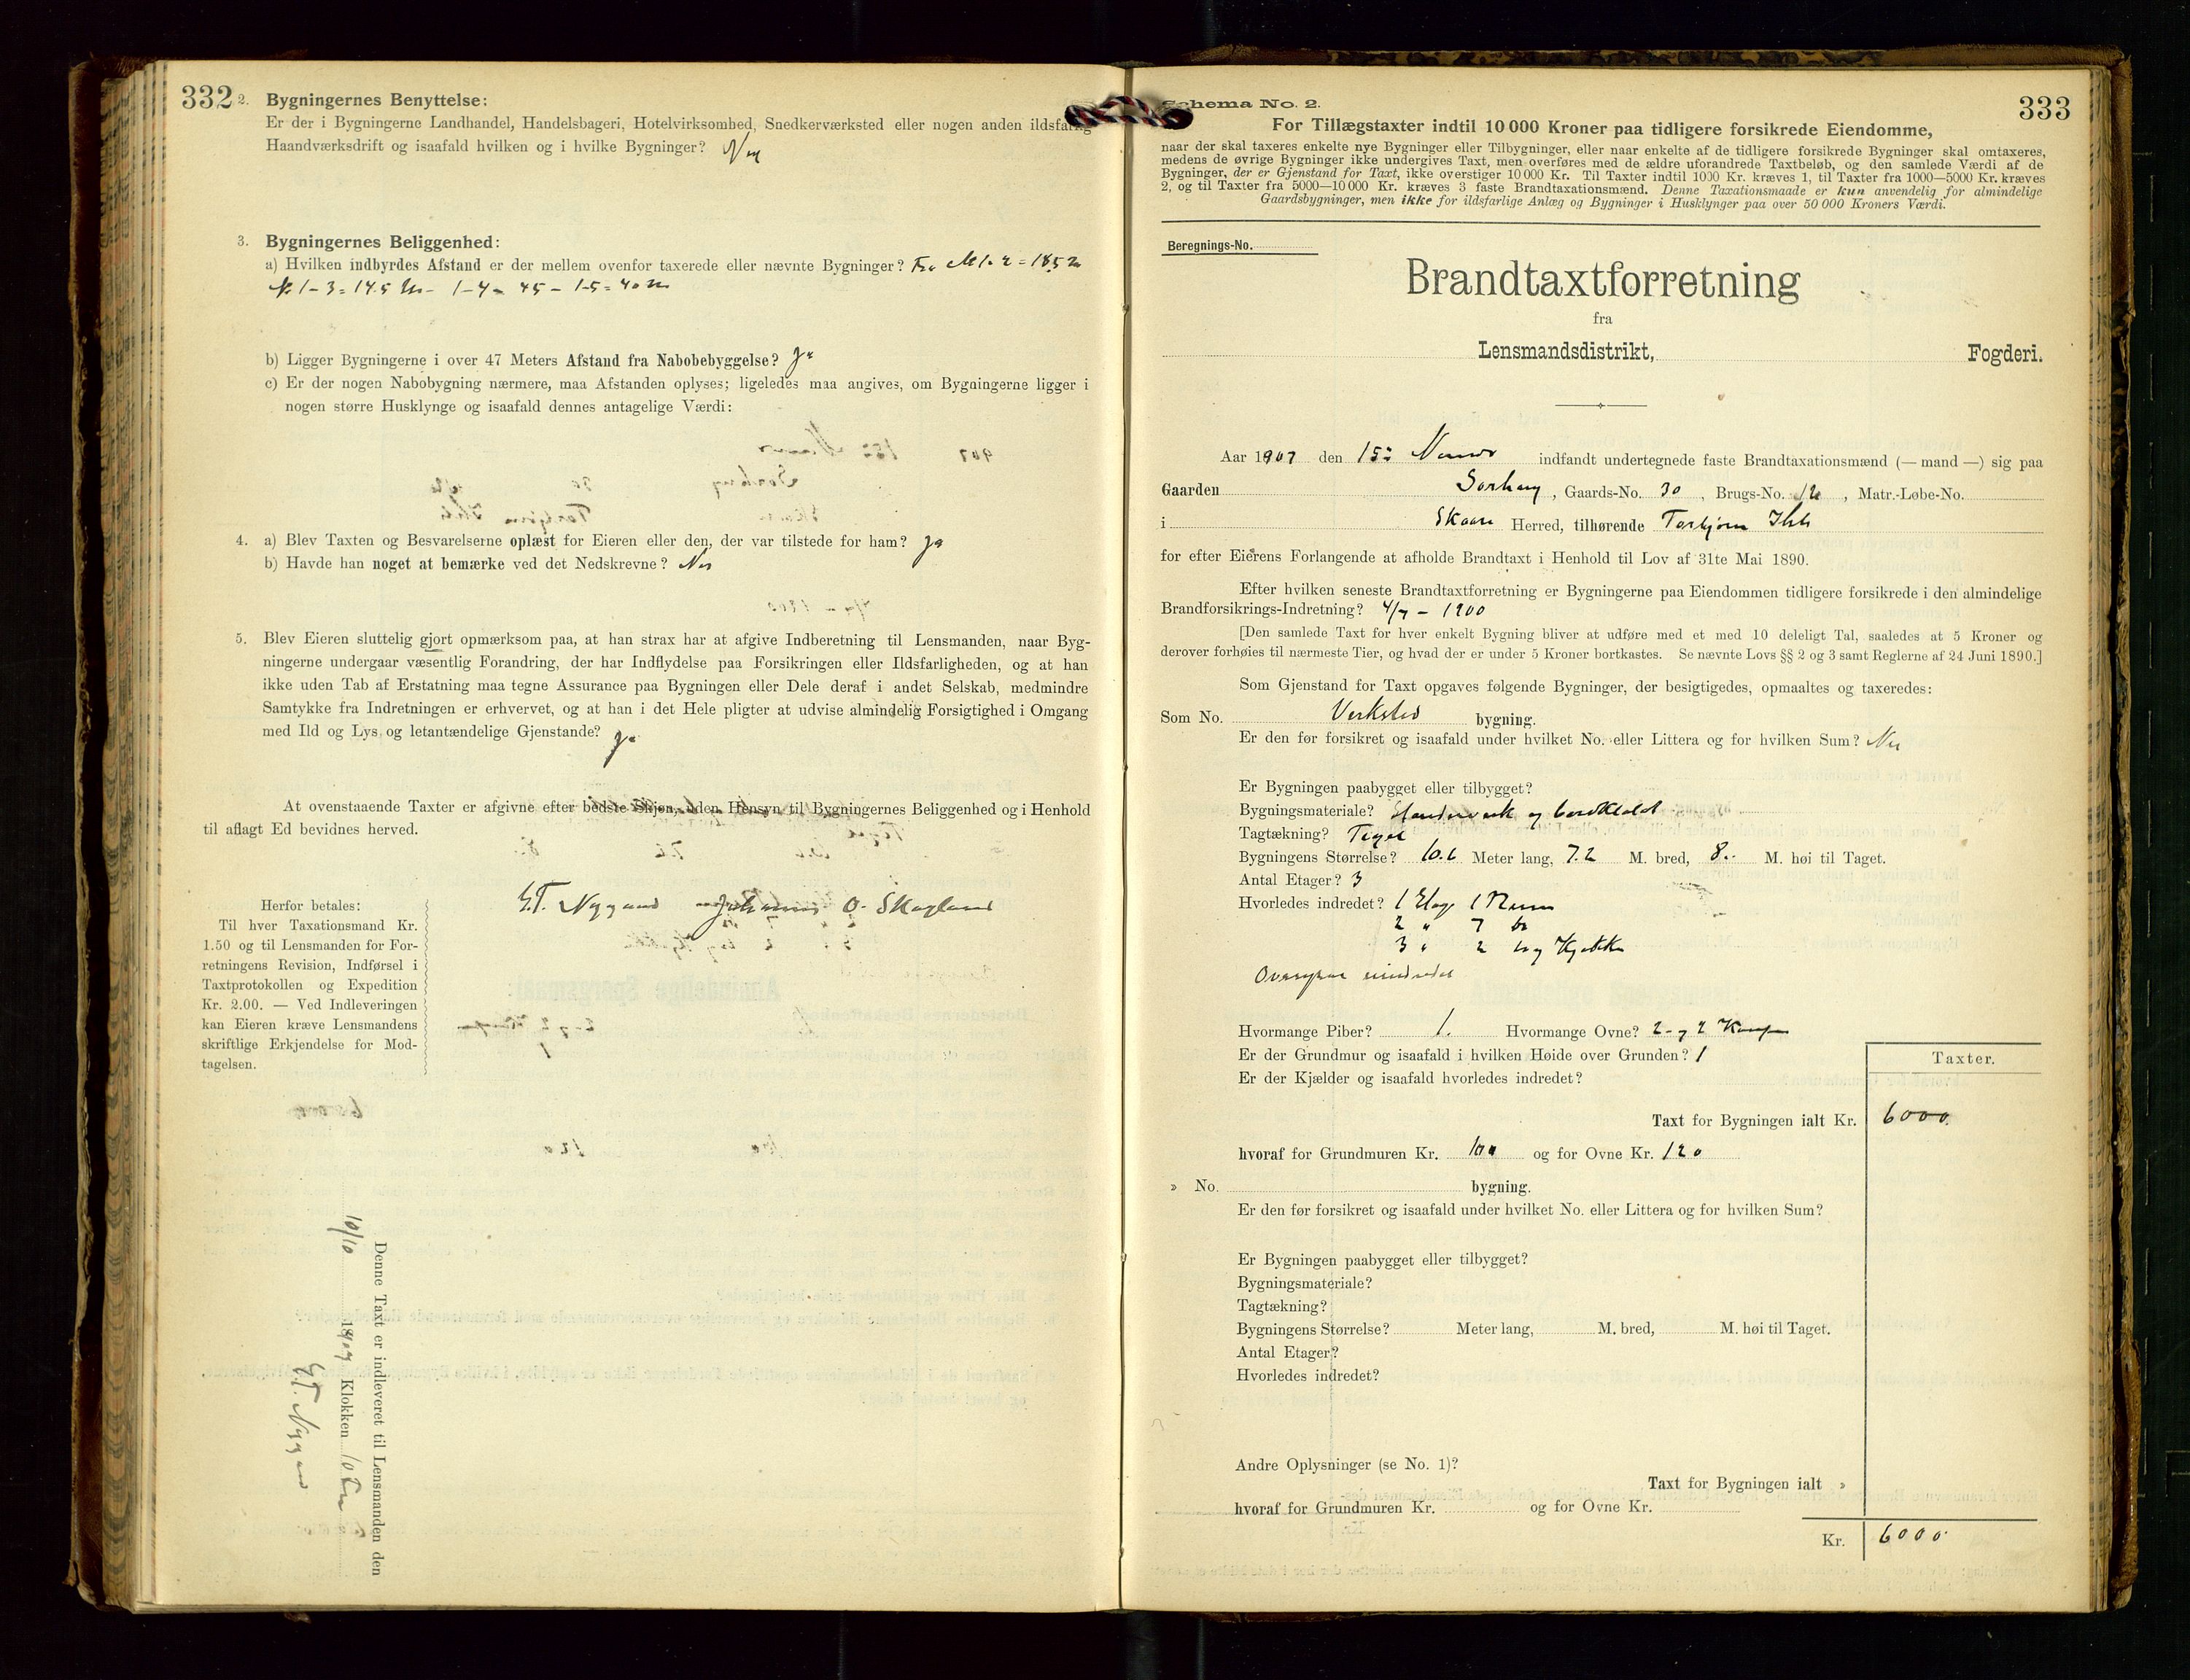 332
2. Bygningernes Benyttelse:
Er der i Bygningerne Landhandel, Handelsbageri, Hotelvirksomhed, Snedkerværksted eller nogen anden ildsfarlig
Haandværksdrift og isaafald hvilken og i hvilke Bygninger? Nei
3. Bygningernes Beliggenhed:
a) Hvilken indbyrdes Afstand er der mellem ovenfor taxerede eller nævnte Bygninger? Fra № 1-2 = 18,5 m
№ 1-3 = 14.5 m - 1-4 = 45 - 1-5 = 40 m
b) Ligger Bygningerne i over 47 Meters Afstand fra Nabobebyggelse? Ja
c) Er der nogen Nabobygning nærmere, maa Afstanden oplyses; ligeledes maa angives, om Bygningerne ligger i
nogen større Husklynge og isaafald dennes antagelige Værdi:
4. a) Blev Taxten og Besvarelserne oplæst for Eieren eller den, der var tilstede for ham? Ja
b) Havde han noget at bemærke ved det Nedskrevne? Nei
5. Blev Eieren sluttelig gjort opmærksom paa, at han strax har at afgive Indberetning til Lensmanden, naar Byg-
ningerne undergaar væsentlig Forandring, der har Indflydelse paa Forsikringen eller Ildsfarligheden, og at han
ikke uden Tab af Erstatning maa tegne Assurance paa Bygningen eller Dele deraf i andet Selskab, medmindre
Samtykke fra Indretningen er erhvervet, og at han i det Hele pligter at udvise almindelig Forsigtighed i Omgang
med Ild og Lys og letantændelige Gjenstande? Ja
At ovenstaaende Taxter er afgivne efter bedste Skjøn, uden Hensyn til Bygningernes Beliggenhed og i Henhold
til aflagt Ed bevidnes herved.
G.T. Nygaard Johannes O. Skogland
Herfor betales:
Til hver Taxationsmand Kr.
1.50 og til Lensmanden for For-
retningens Revision, Indførsel i
Taxtprotokollen og Expedition
Kr. 2.00. — Ved Indleveringen
kan Eieren kræve Lensmandens
skriftlige Erkjendelse for Mod-
tagelsen.
Denne Taxt er indleveret til Lensmanden den
10/10 1907 Klokken 10 Fm
G.T. Nygaard
333
Schema No. 2.
For Tillægstaxter indtil 10 000 Kroner paa tidligere forsikrede Eiendomme,
naar der skal taxeres enkelte nye Bygninger eller Tilbygninger, eller naar enkelte af de tidligere forsikrede Bygninger skal omtaxeres,
medens de øvrige Bygninger ikke undergives Taxt, men overføres med de ældre uforandrede Taxtbeløb, og den samlede Værdi af de
Bygninger, der er Gjenstand for Taxt, ikke overstiger 10 000 Kr. Til Taxter indtil 1000 Kr. kræves 1, til Taxter fra 1000—5000 Kr. kræves
2, og til Taxter fra 5000—10 000 Kr. kræves 3 faste Brandtaxationsmænd. Denne Taxationsmaade er kun anvendelig for almindelige
Gaardsbygninger, men ikke for ildsfarlige Anlæg og Bygninger i Husklynger paa over 50 000 Kroners Værdi.
Beregnings-No.
Brandtaxtforretning
fra
Lensmandsdistrikt, Fogderi.
Aar 1907 den 15 indfandt undertegnede faste Brandtaxationsmænd (— mand —) sig paa
Gaarden Sørhaug, Gaards-No. 30, Brugs-No. 12, Matr.-Løbe-No.
i Skaare Herred, tilhørende Torbjørn
for efter Eierens Forlangende at afholde Brandtaxt i Henhold til Lov af 31te Mai 1890.
Efter hvilken seneste Brandtaxtforretning er Bygningerne paa Eiendommen tidligere forsikrede i den almindelige
Brandforsikrings-Indretning? 4/7 - 1900
[Den samlede Taxt for hver enkelt Bygning bliver at udføre med et med 10 deleligt Tal, saaledes at 5 Kroner og
derover forhøies til nærmeste Tier, og hvad der er under 5 Kroner bortkastes. Se nævnte Lovs §§ 2 og 3 samt Reglerne af 24 Juni 1890.]
Som Gjenstand for Taxt opgaves følgende Bygninger, der besigtigedes, opmaaltes og taxeredes:
Som No. Verksted bygning.
Er den før forsikret og isaafald under hvilket No. eller Littera og for hvilken Sum? Nei
Er Bygningen paabygget eller tilbygget?
Bygningsmateriale? Stenderverk og bordklædt
Tagtækning? Tegel
Bygningens Størrelse? 10.6 Meter lang, 7.2 M. bred, 8.. M. høi til Taget.
Antal Etager? 3
Hvorledes indredet? 1 Etage 1 Rum
2 " 7 do
3 " 2 do og Kjøkken
uindredet
Hvormange Piber? 1. Hvormange Ovne? 2 og 2
Er der Grundmur og isaafald i hvilken Høide over Grunden? 1
Er der Kjælder og isaafald hvorledes indredet?
Taxter.
Taxt for Bygningen ialt Kr. 6000
hvoraf for Grundmuren Kr. 100 og for Ovne Kr. 120
» No. bygning.
Er den før forsikret og isaafald under hvilket No. eller Littera og for hvilken Sum?
Er Bygningen paabygget eller tilbygget?
Bygningsmateriale?
Tagtækning?
Bygningens Størrelse? Meter lang, M. bred, M. høi til Taget.
Antal Etager?
Hvorledes indredet?
Andre Oplysninger (se No. 1)?
Taxt for Bygningen ialt »
hvoraf for Grundmuren Kr. og for Ovne Kr.
Kr. 6000